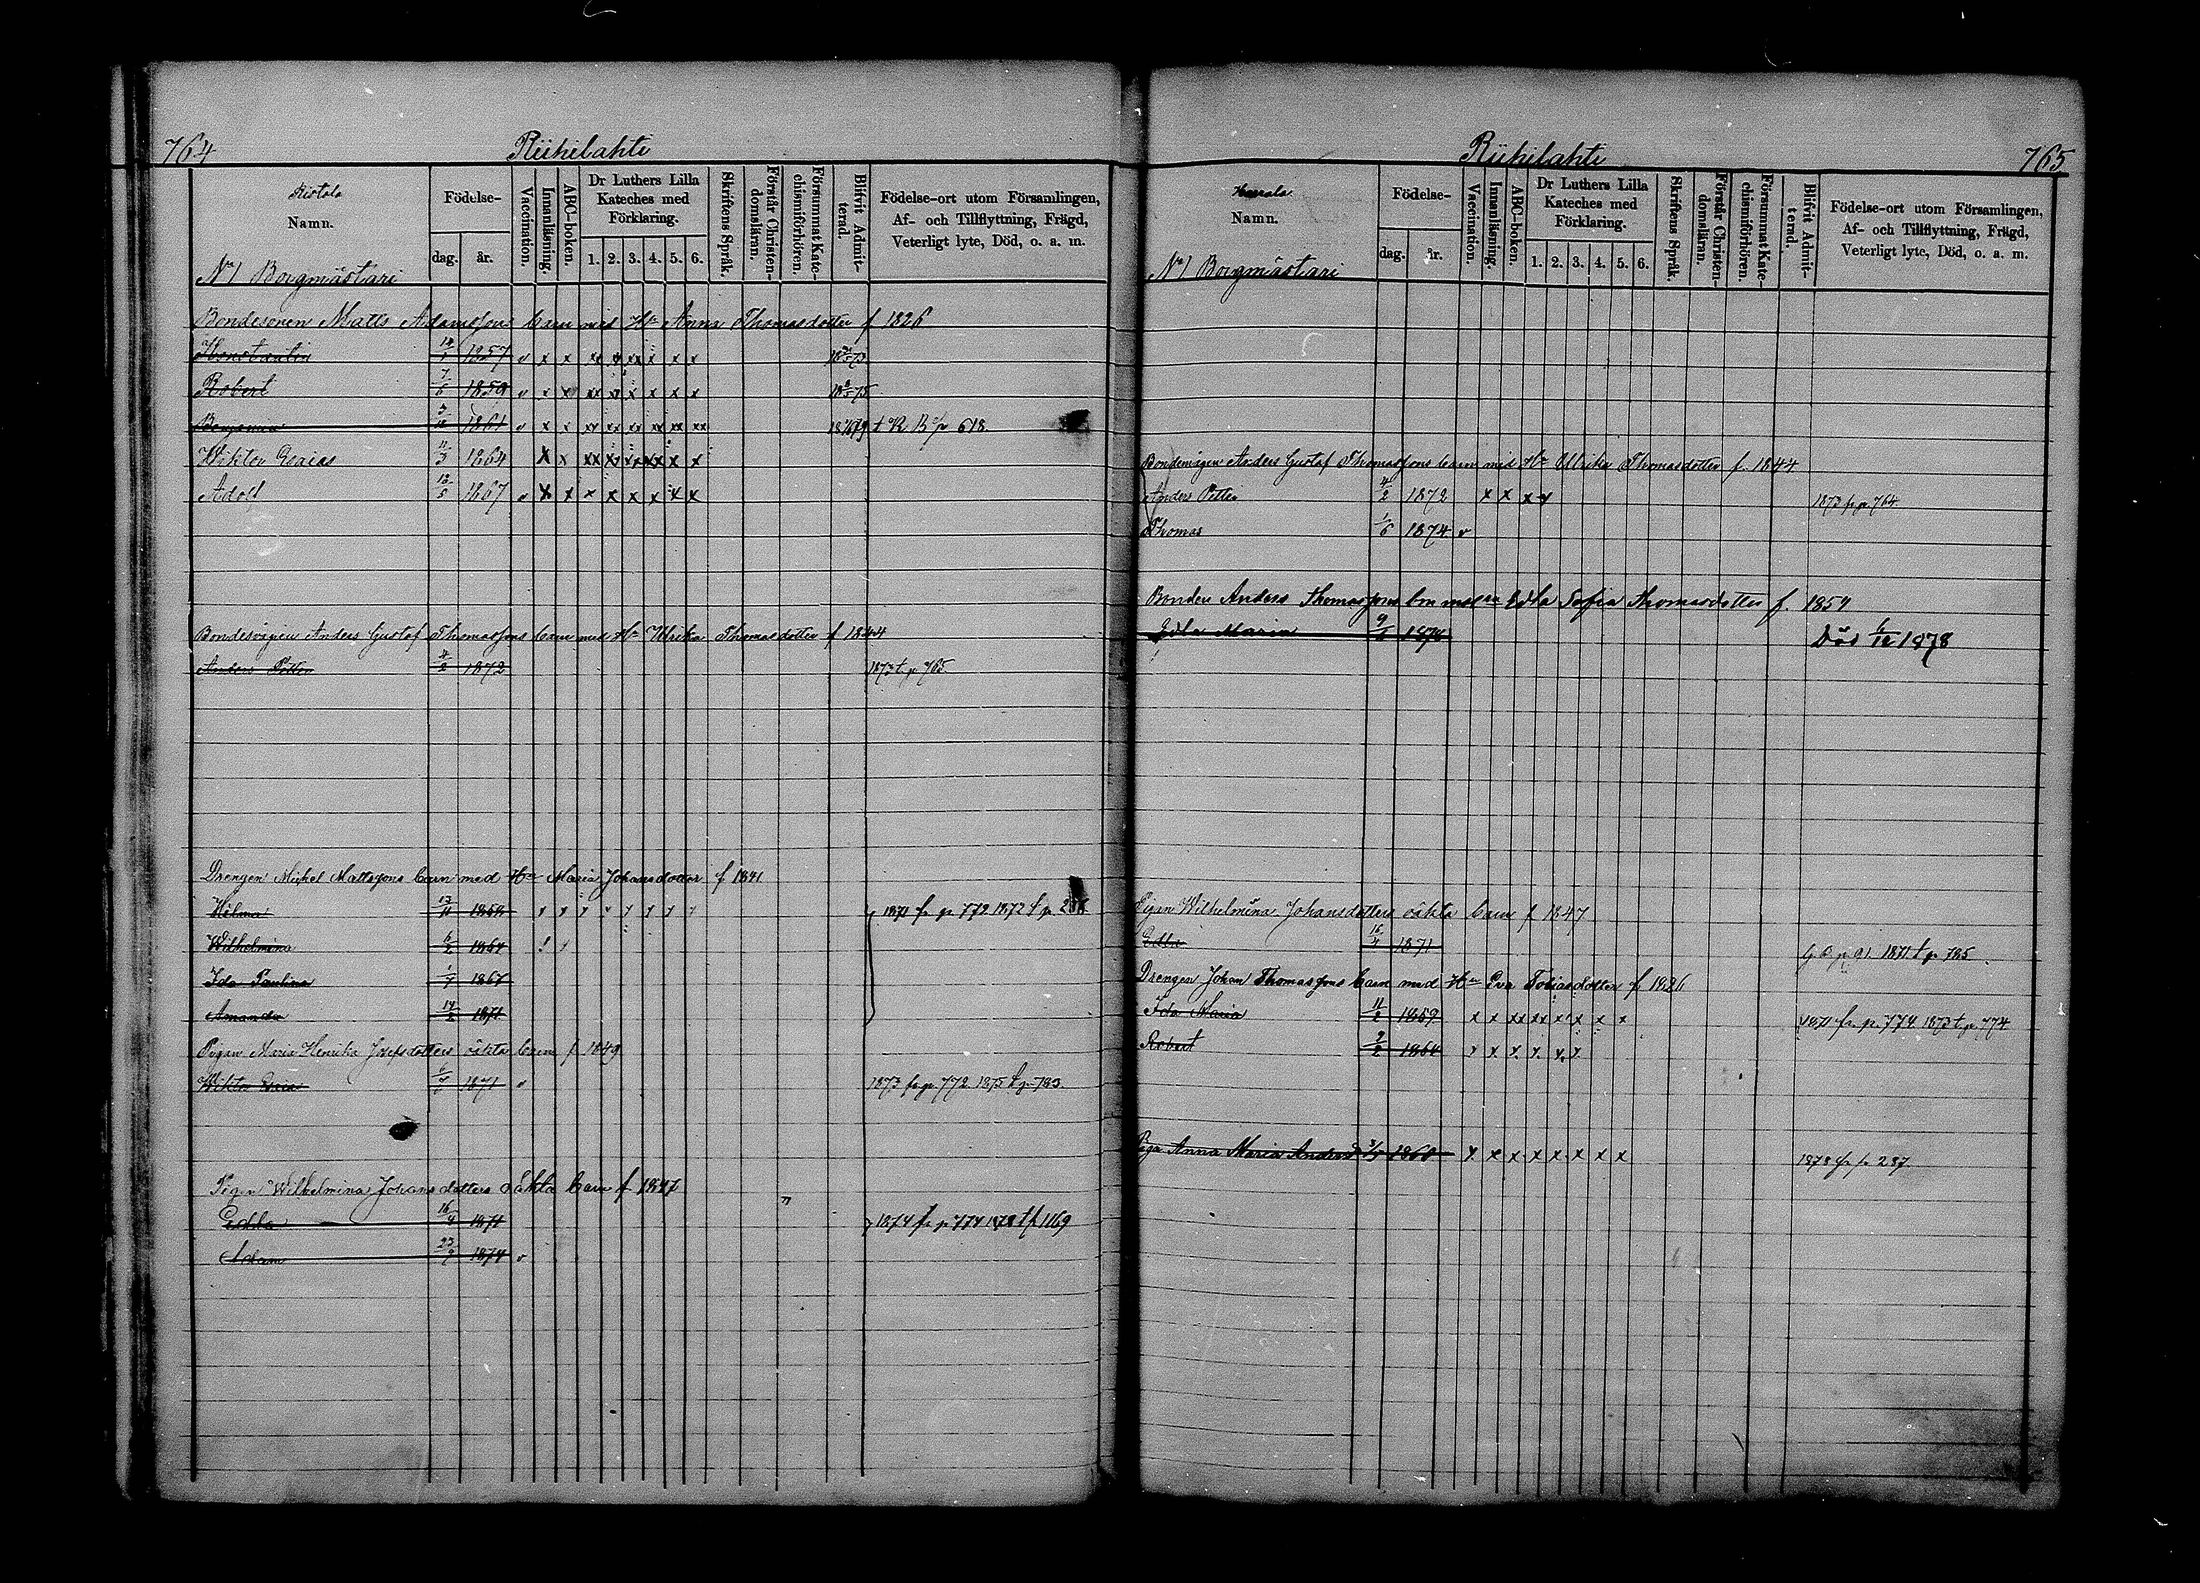 764
Riihilahti
Ristola
Namn.
Födelse-
dag. år.
Vaccination.
Innanläsning.
ABC-boken.
Dr Luthers Lilla Kateches med Förklaring.
1. 2. 3. 4. 5. 6.
Skriftens Språk.
Förstår Christendomsläran.
Försummat Katechismiförhören.
Blifvit Admitterad.
Födelse-ort utom Församlingen,
Af- och Tillflyttning, Frägd,
Veterligt lyte, Död, o. a. m.
No 1 Borgmästari
Bondesonen Matts Adamssons barn med Hu Anna Thomasdotter f 1826
Konstantin 1857 v x x xx x xx x x x
Robert 7/6 1859 v x x xx x x x x x
Benjamin 1861 v x x xx xx xx xx xx t K B p 618
Wiktor Esaias 11/3 1864 x x xx x x x x x
Adolf 12/5 1867 v x x x x x x x x
Bondemågen Anders Gustaf Thomassons barn med Hu Ulrika Thomasdotter f 1844
Anders Petter 4/2 1872 1873 t p 765
Drengen Mickel Mattssons barn med Hu Maria Johansdotter f 1841
Hilma 13/11 1859 x x x x x x x x 1871 fr p 772 1872 t p
Wilhelmina 6/2 1864
Ida Paulina 1/7 1867
Amanda 1871
Pigan Maria Henrika Josefsdotters oäkta barn f 1849
Wiktor Esaias 1871 v 1873 fr p 772 1875 t p 783
Pigan Wilhelmina Johansdotters oäkta barn f 1847
Edla 16/4 1871 1874 fr p 774 1878 t p 1169
Adam 23/9 1874 v
Riihilahti
765
Namn.
Födelse-
dag. år.
Vaccination.
Innanläsning.
ABC-boken.
Dr Luthers Lilla Kateches med Förklaring.
1. 2. 3. 4. 5. 6.
Skriftens Språk.
Förstår Christendomsläran.
Försummat Katechismiförhören.
Blifvit Admitterad.
Födelse-ort utom Församlingen,
Af- och Tillflyttning, Frägd,
Veterligt lyte, Död, o. a. m.
No 1 Borgmästari
Bondemågen Anders Gustaf Thomassons barn med Hu Ulrika Thomasdotter f. 1844
Anders Petter 4/2 1872 x x x x 1873 fr p 764
Thomas 1/6 1874 v
Bonden Anders Thomassons barn med Hu Edla Sofia Thomasdotter f. 1859
Edla Maria Död 1878
Pigan Wilhelmina Johansdotters oäkta barn f 1847
Edla 16/4 1871 1871 t p 785
Drengen Johan Thomassons barn med Hu Eva Tobiasdotter f 1826
Ida Maria 11/2 1859 x x xx xx x x x x 1871 fr. p. 774 1873 t p. 774
Robert 9/2 1864 x x x x x x
Piga Anna Maria 1860 x x x x x x x x 1878 fr p 287